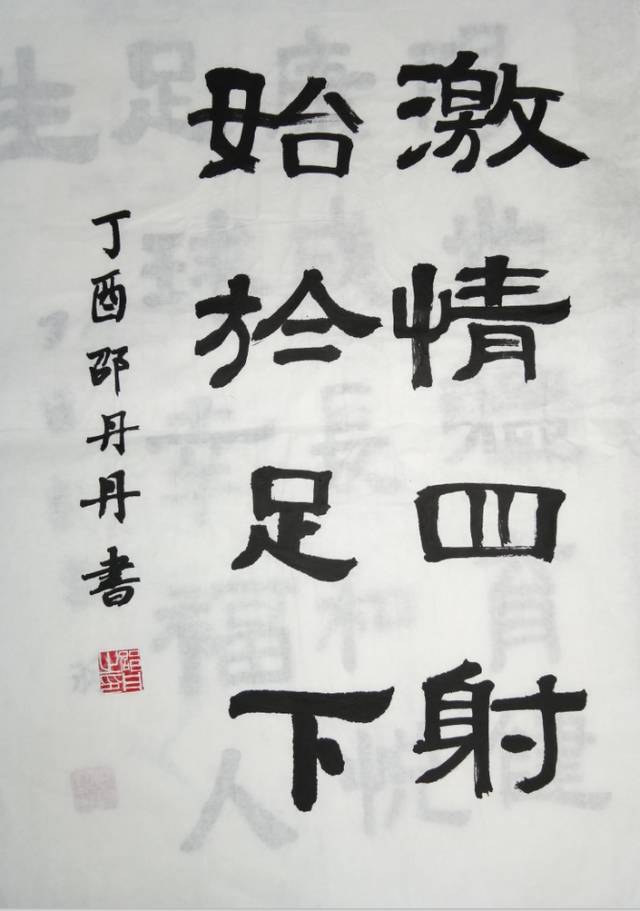 激情四射
始於足下
丁酉邵丹丹書